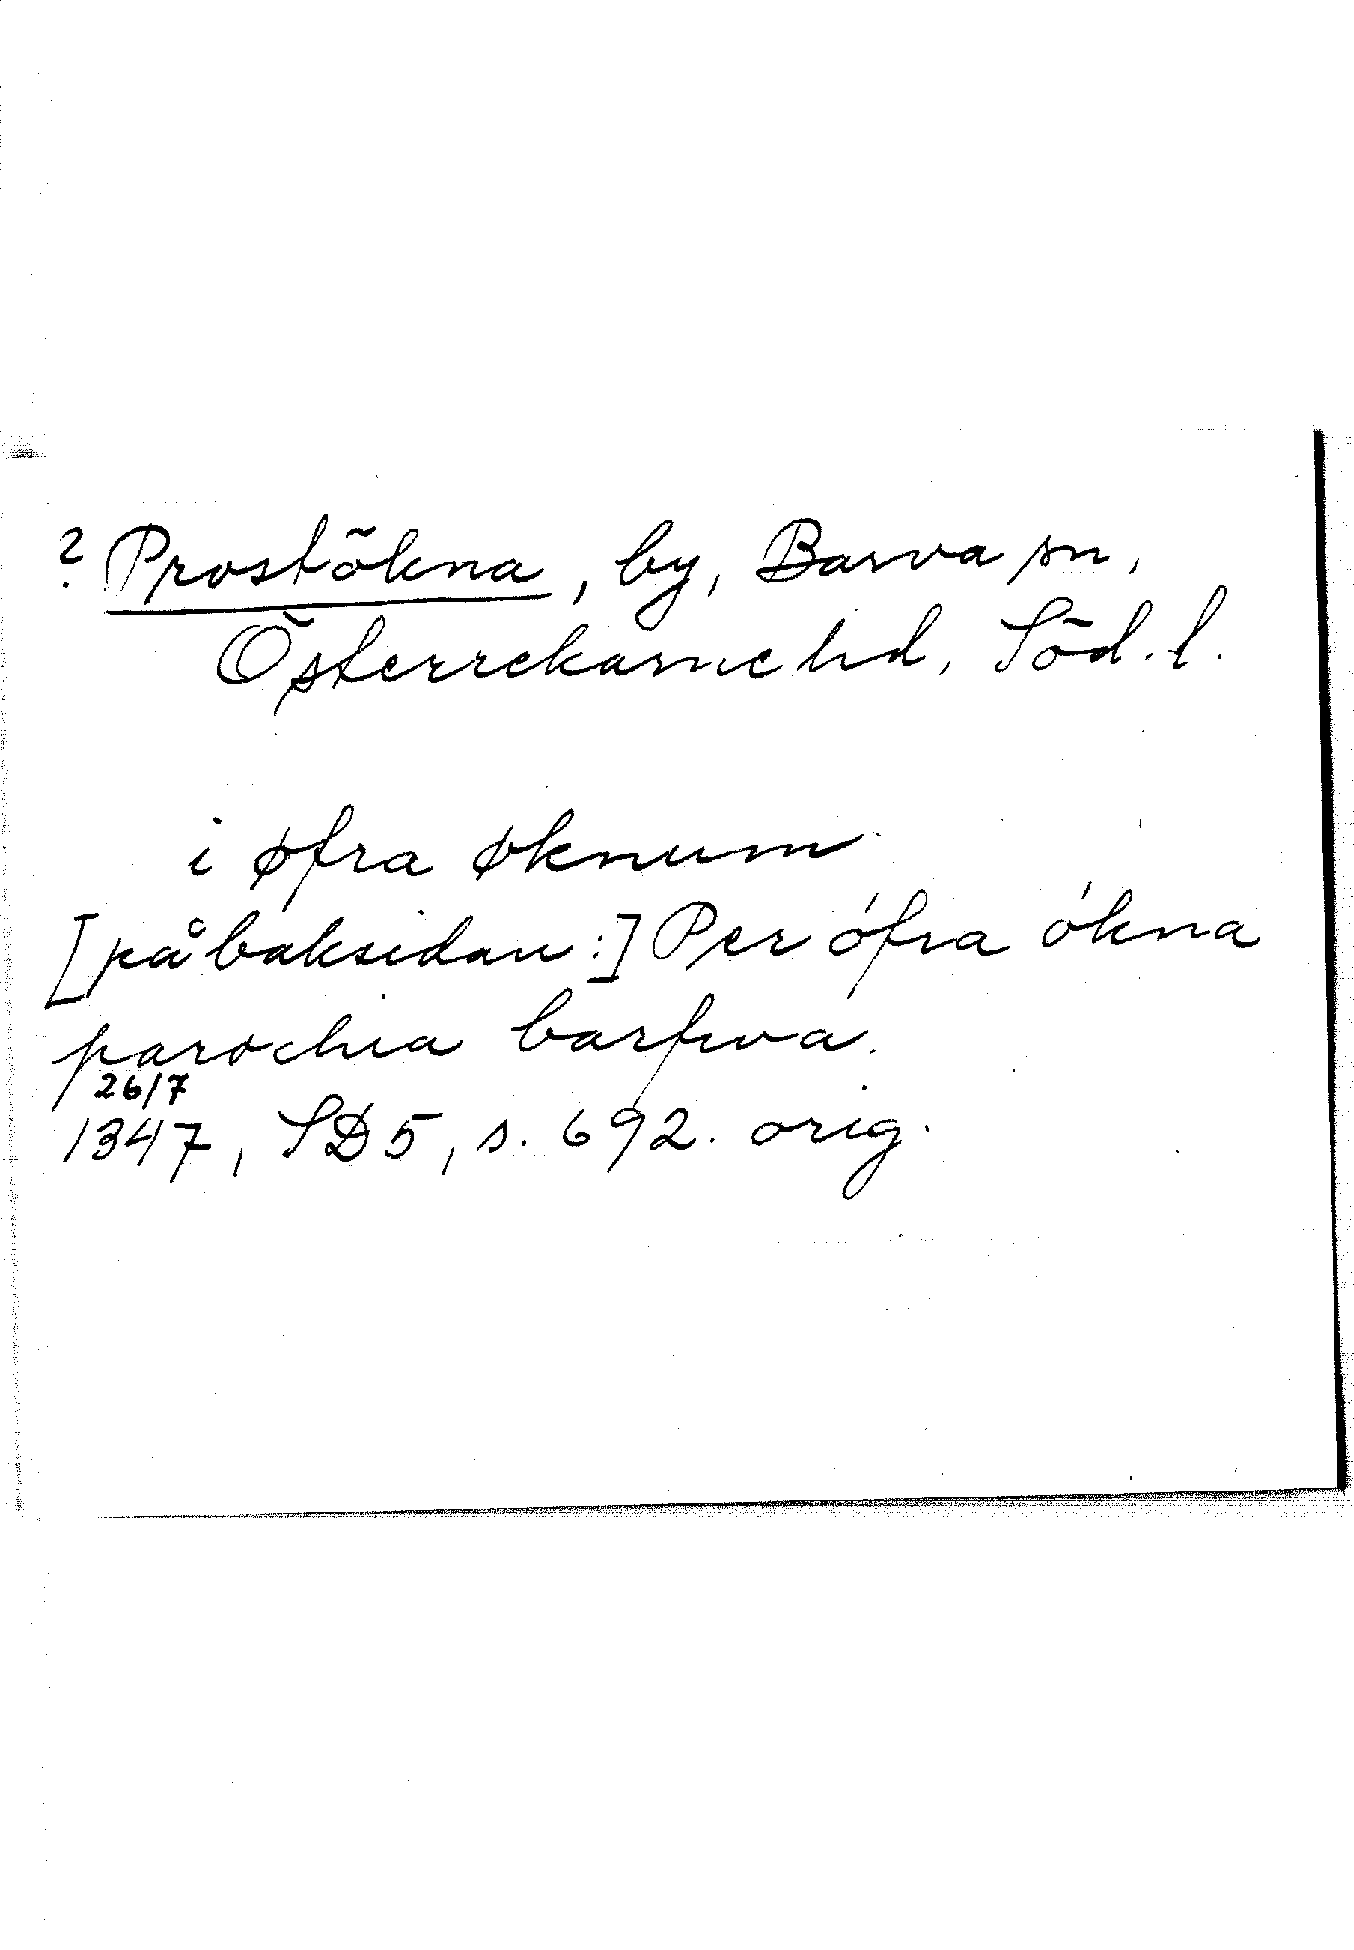 ? Prostökna, by, Barva sn,
Österrekarne hd, Söd. l.
i øfra øknum
[på baksidan:] Per ófra ókna
parochia barfwa.
26/7
1347, SD 5, s. 692. orig.